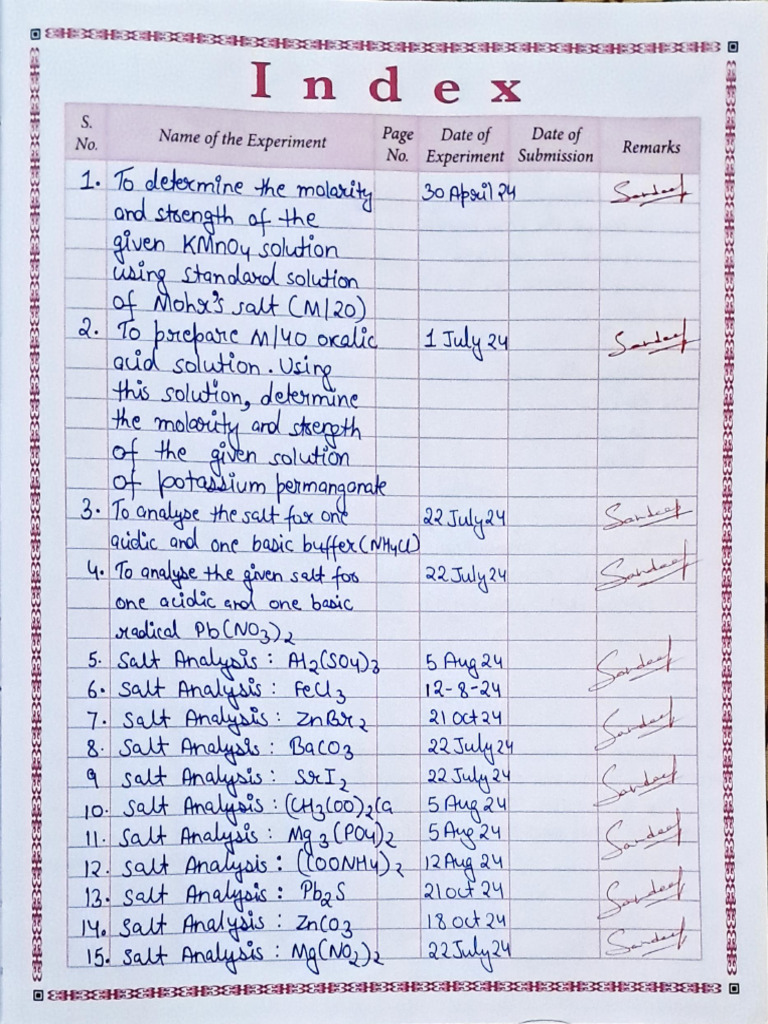 Index
S. No. Name of the Experiment Page No. Date of Experiment Date of Submission Remarks
1. To determine the molarity 30 April 24 Sandeep
and strength of the
given KMnO4 solution
using standard solution
of Mohr's salt (M/20)
2. To prepare M/40 oxalic 1 July 24 Sandeep
acid solution. Using
this solution, determine
the molarity and strength
of the given solution
of potassium permanganate
3. To analyse the salt for one 22 July 24 Sandeep
acidic and one basic buffer (NH4Cl)
4. To analyse the given salt for 22 July 24 Sandeep
one acidic and one basic
radical Pb(NO3)2
5. Salt Analysis : Al2(SO4)3 5 Aug 24 Sandeep
6. Salt Analysis : FeCl3 12-8-24
7. Salt Analysis : ZnBr2 21 Oct 24 Sandeep
8. Salt Analysis : BaCO3 22 July 24
9 Salt Analysis : SrI2 22 July 24 Sandeep
10. Salt Analysis : (CH3COO)2Ca 5 Aug 24
11. Salt Analysis : Mg3(PO4)2 5 Aug 24 Sandeep
12. Salt Analysis : (COONH4)2 12 Aug 24
13. Salt Analysis : Pb2S 21 Oct 24 Sandeep
14. Salt Analysis : ZnCO3 18 Oct 24
15. Salt Analysis : Mg(NO2)2 22 July 24 Sandeep